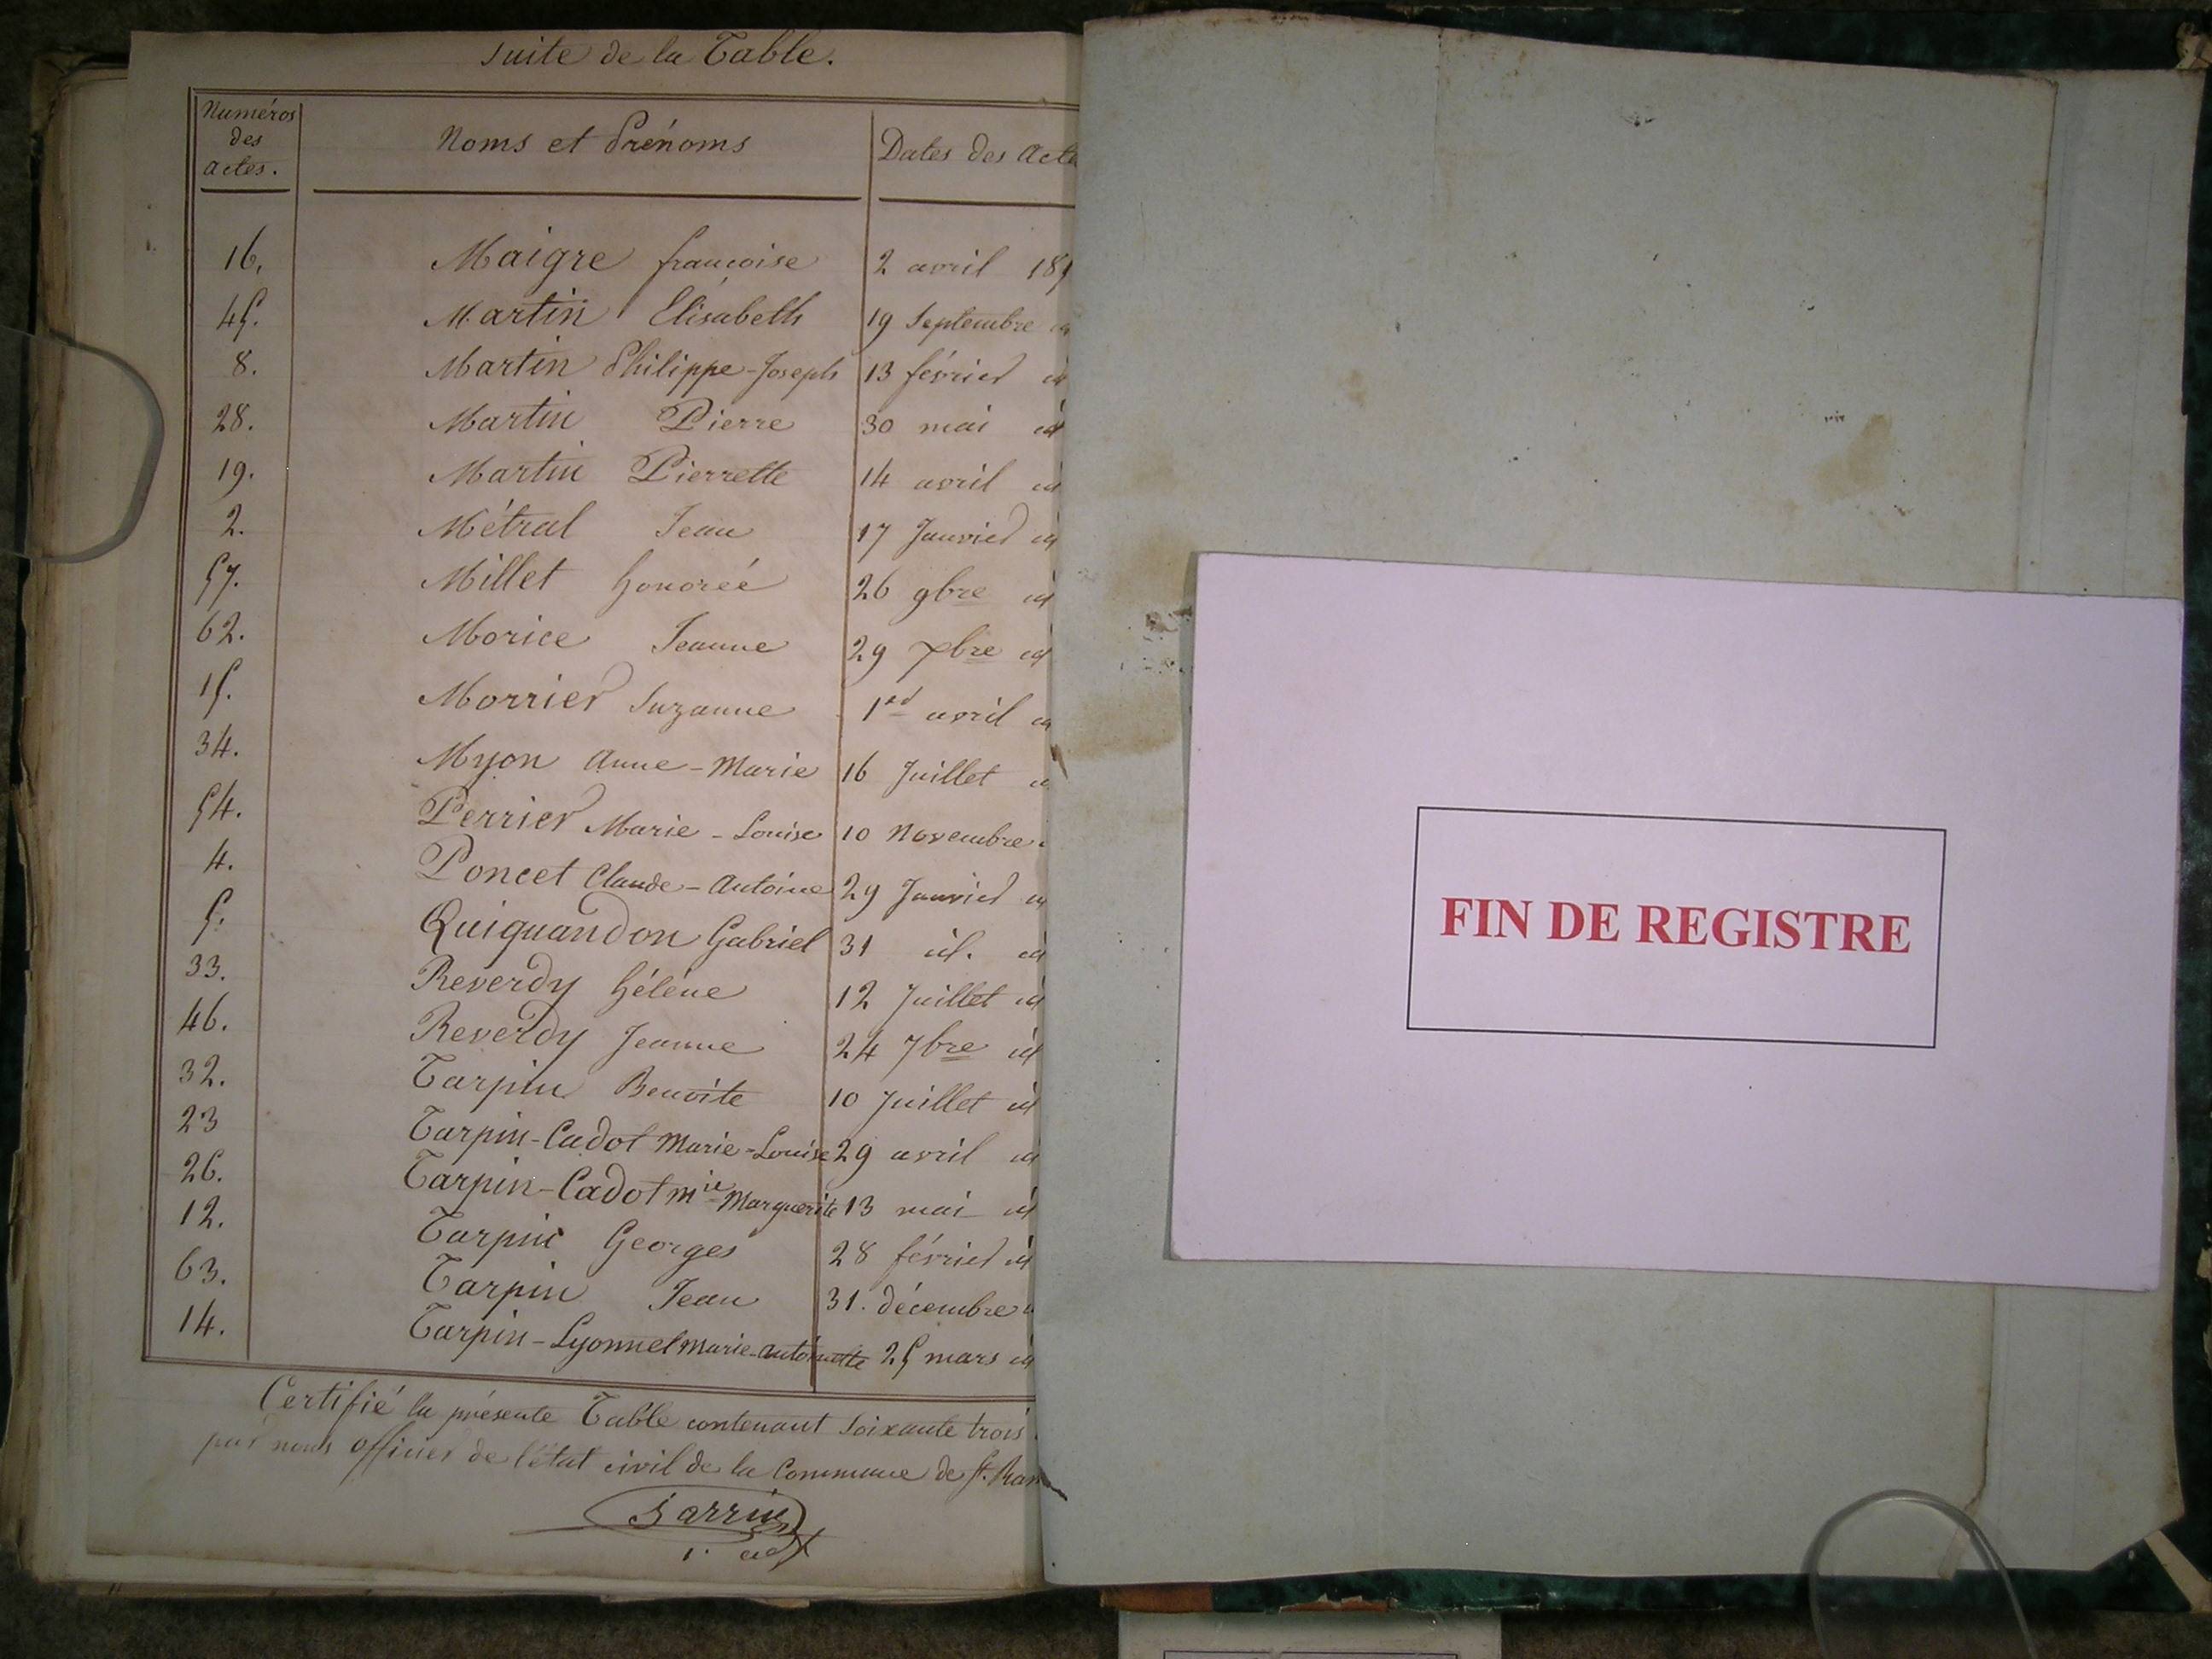 Suite de la Table.
Numéros des actes. Noms et Prénoms Dates des Acte
16. Maigre françoise 2 avril 185
45. Martin Elisabeth 19 Septembre id
8. Martin Philippe-Joseph 13 février id
28. Martin Pierre 30 mai id
19. Martin Pierrette 14 avril id
2. Métral Jean 17 Janvier id
57. Millet honorée 26 9bre id
62. Morice Jeanne 29 Xbre id
15. Morrier Suzanne 1er avril id
34. Myon Anne-Marie 16 Juillet
54. Perrier Marie-Louise 10 Novembre
4. Poncet Claude-Antoine 29 Janvier id
5. Quiquandon Gabriel 31 id. id
33. Reverdy hélène 12 Juillet id
46. Reverdy Jeanne 24 7bre id
32. Tarpin Benoite 10 Juillet id
23 Tarpin-Cadot Marie-Louise 29 avril id
26. Tarpin-Cadot mie Marguerite 13 mai id
12. Tarpin Georges 28 février id
63. Tarpin Jean 31. décembre
14. Tarpin-Lyonnet Marie-antoinette 25 mars id
Certifié la présente Table contenant soixante trois
par nous officier de l'état civil de la Commune de St. Ram
Sarrin
FIN DE REGISTRE